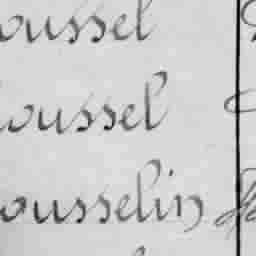 oussel
oussel
ousselin